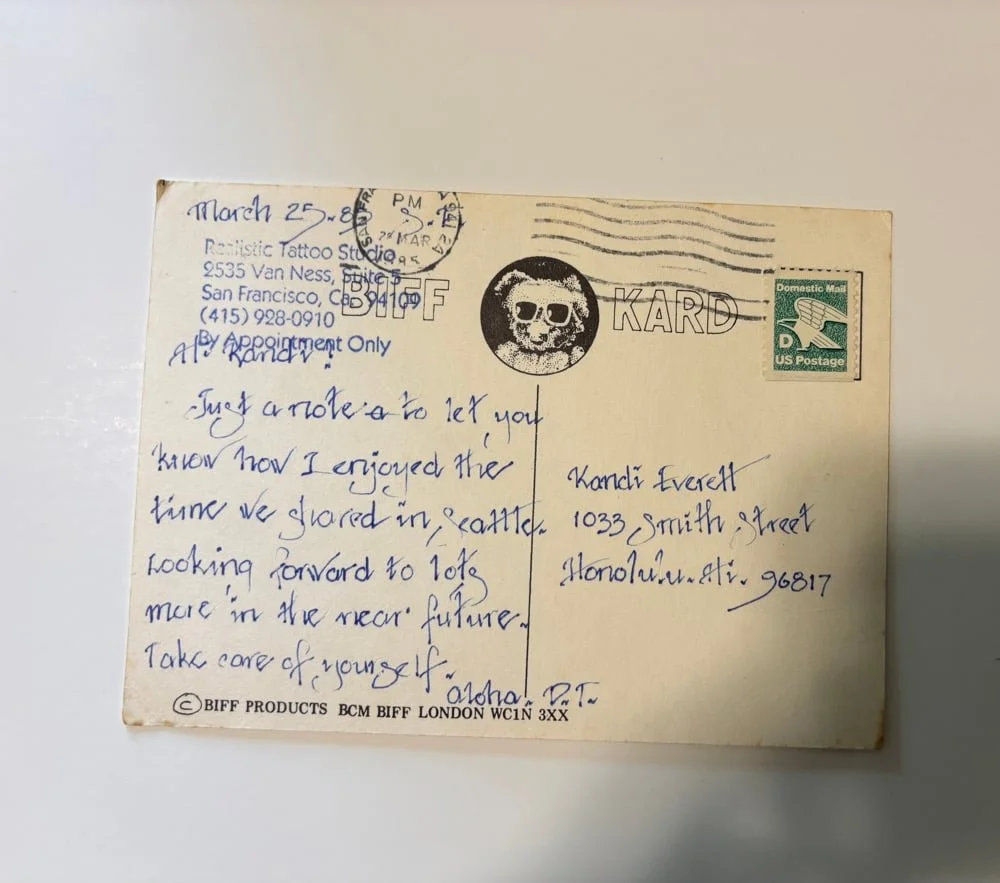 March 25. 85 S.F.
SAN FRA
PM
MAR
1985
941
Realistic Tattoo Studio
2535 Van Ness, Suite 5
San Francisco, Ca. 94109
(415) 928-0910
By Appointment Only
BIFF KARD
Domestic Mail
D
US Postage
Hi. Kandi!
Just a note to let you
know how I enjoyed the
time we shared in Seattle.
Looking forward to lots
more in the near future.
Take care of yourself.
aloha. D.T.
Kandi Everett
1033 Smith Street
Honolulu. Hi. 96817
© BIFF PRODUCTS BCM BIFF LONDON WC1N 3XX